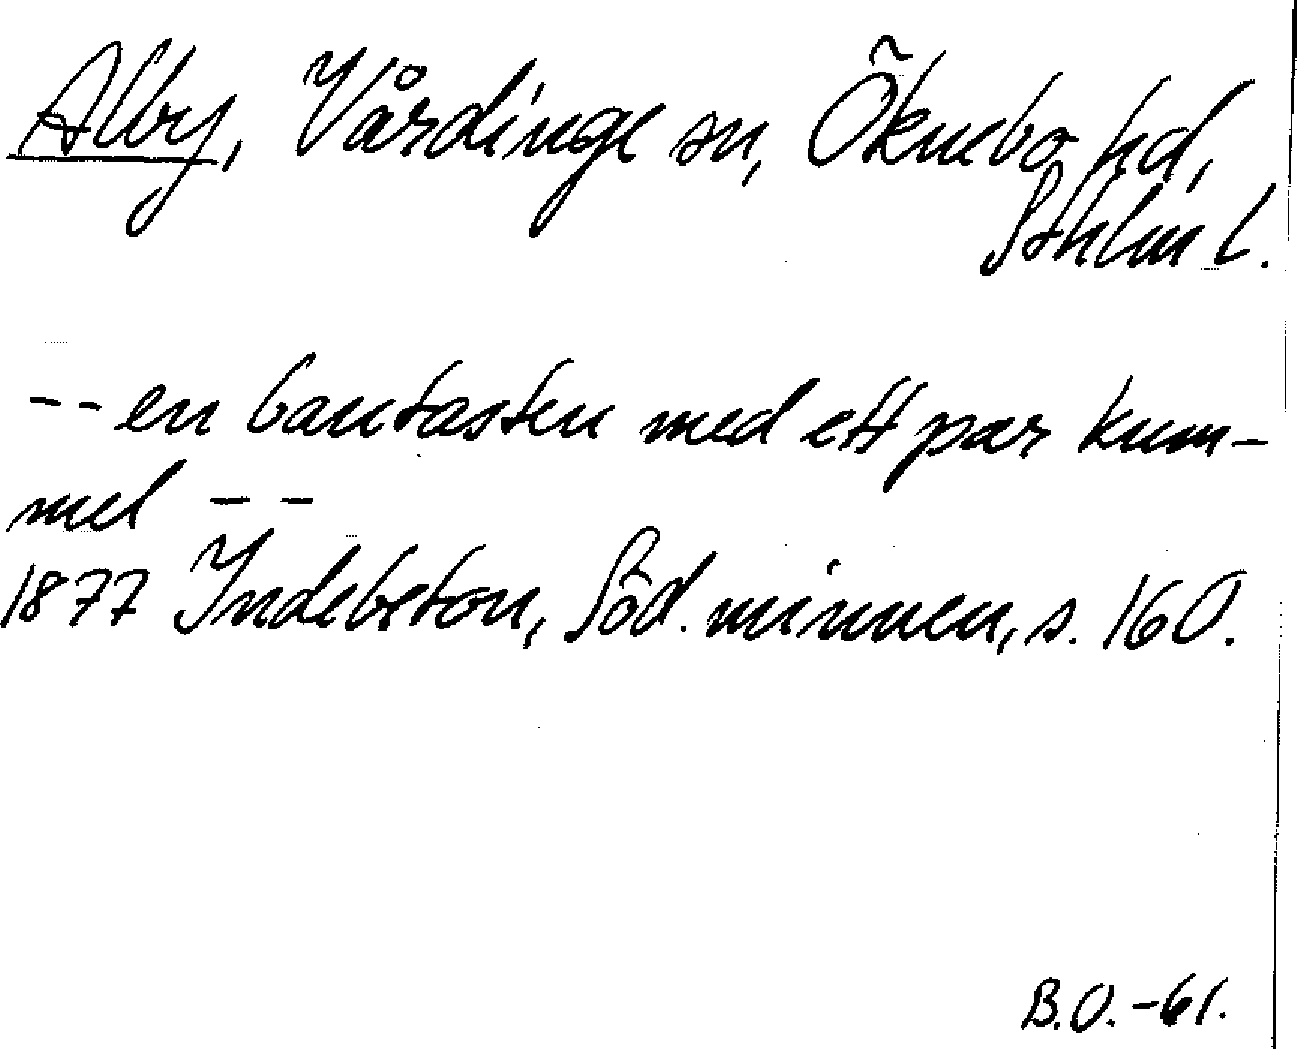 Alby, Vårdinge sn, Öknebo hd,
Sthlm l.
-- en bautasten med ett par kum-
mel --
1877 Indebetou, Söd. minnen, s. 160.
B.O. -61.